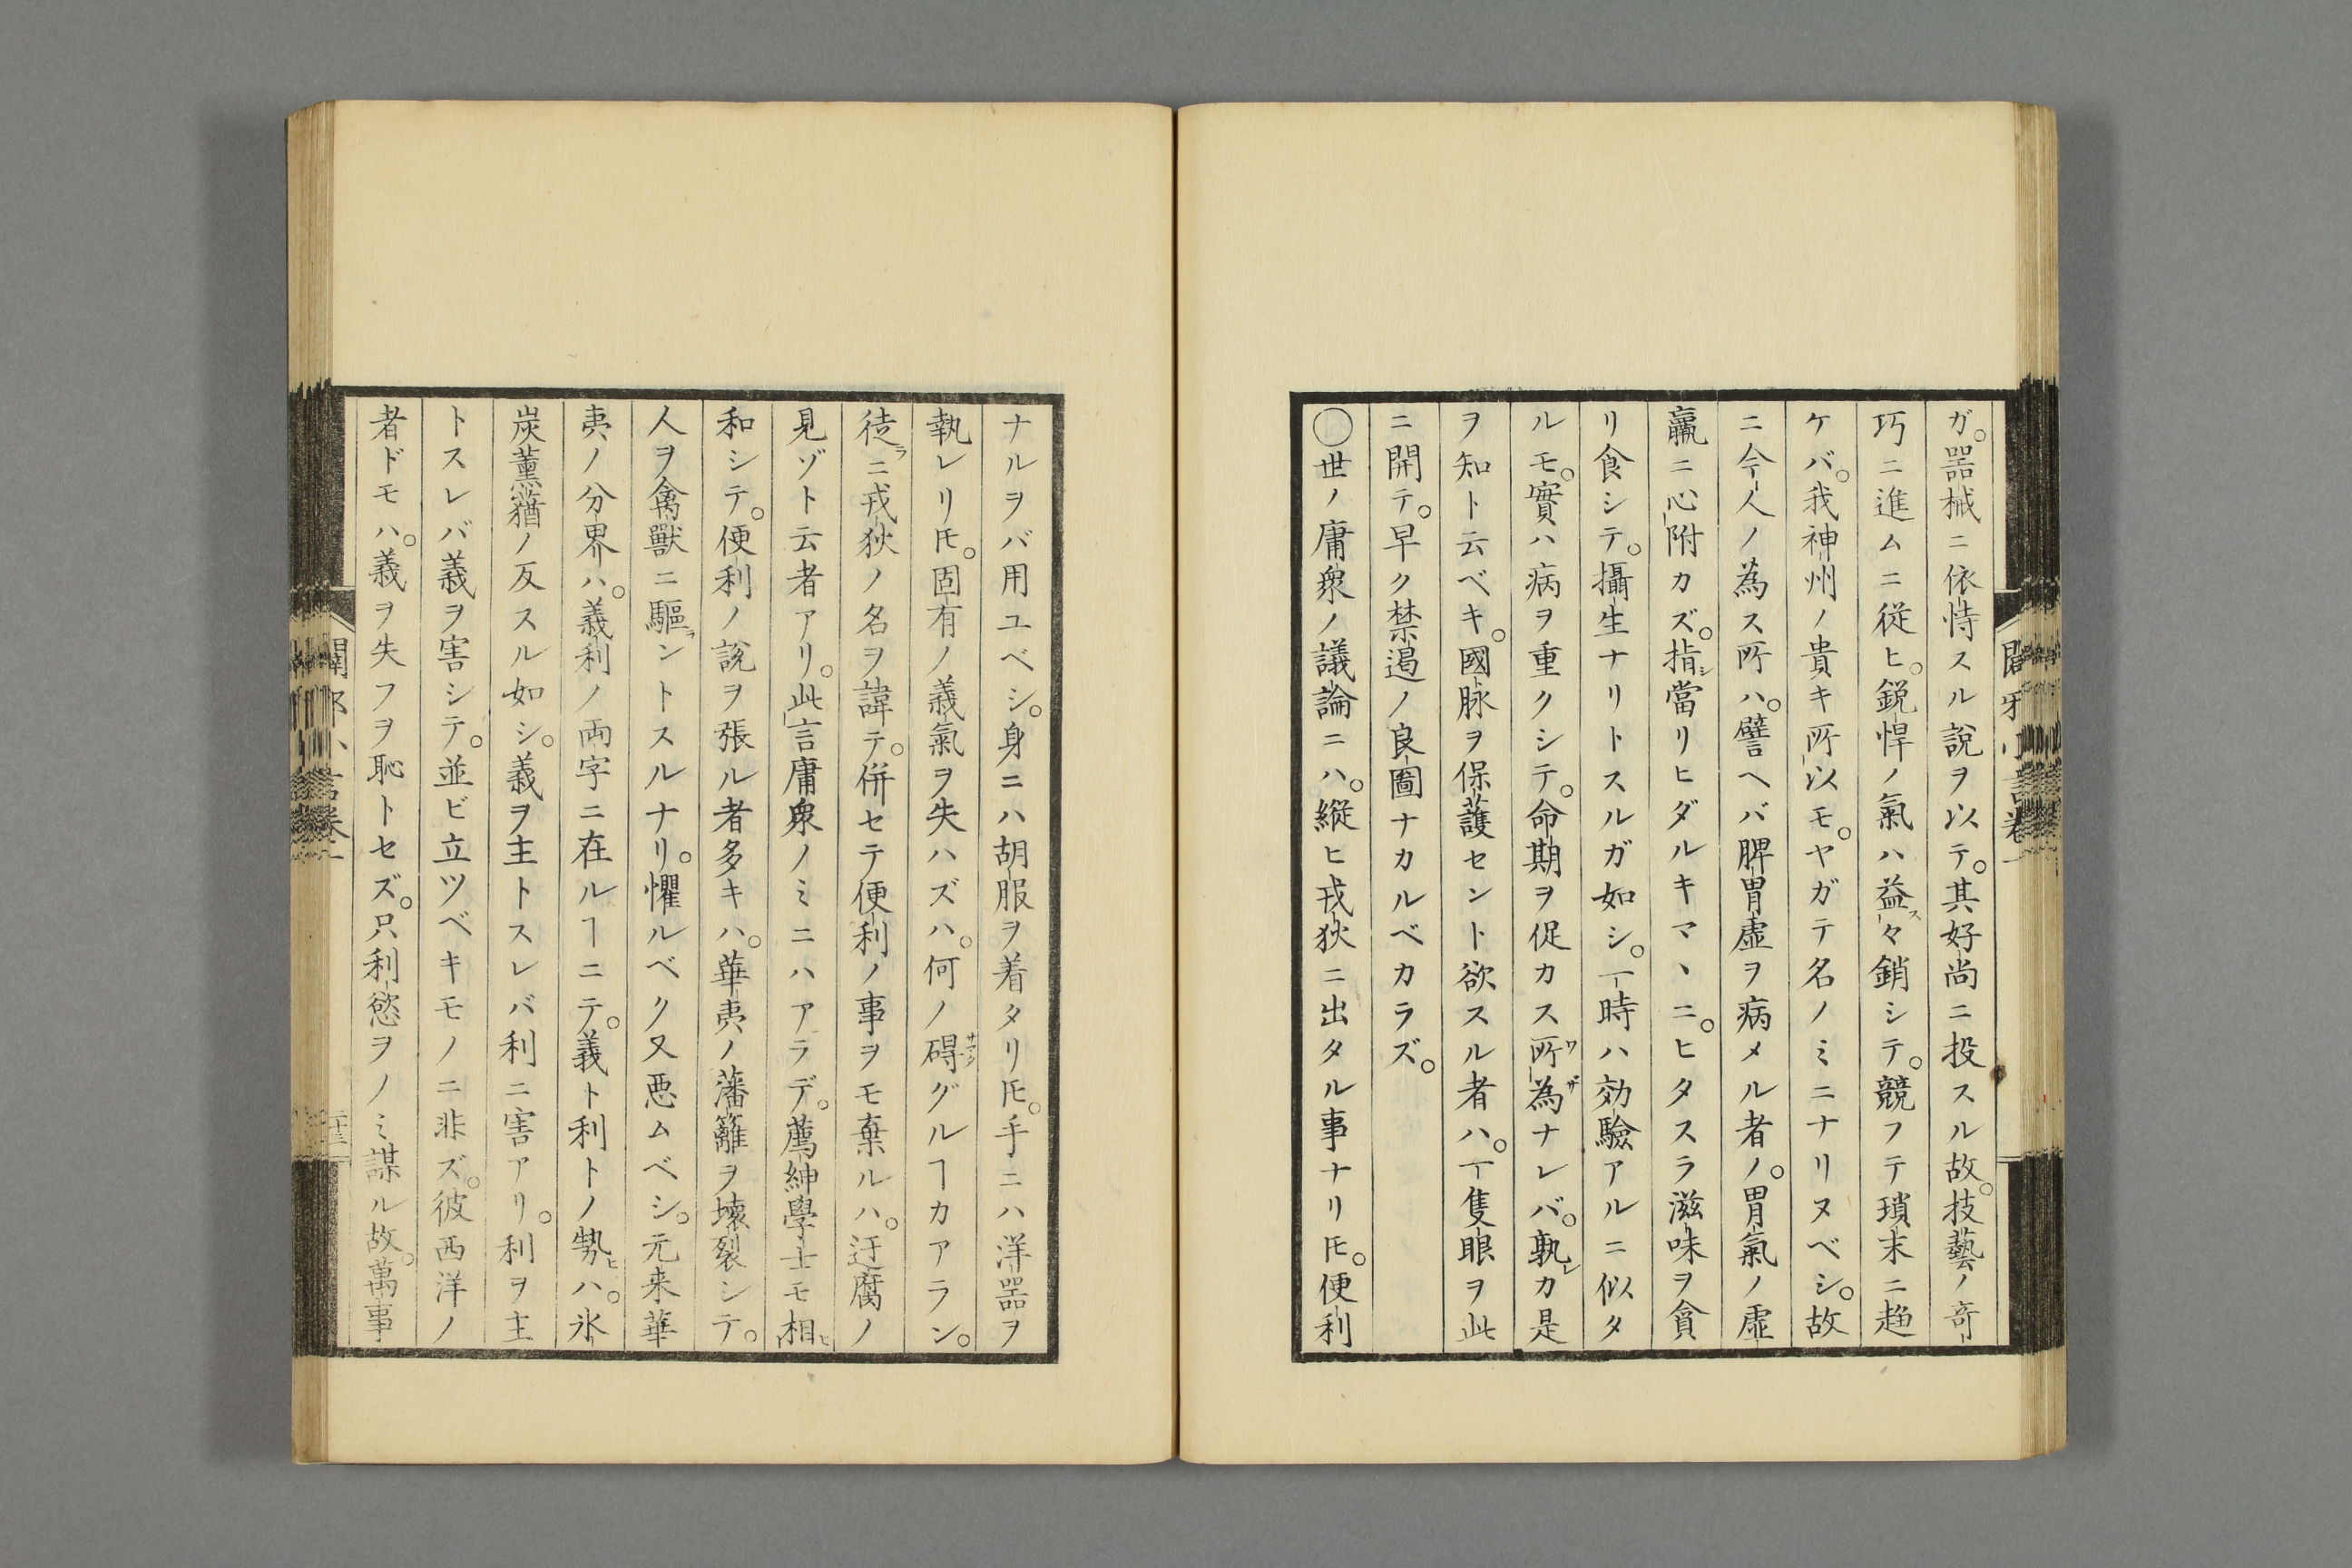 ガ。器械ニ依恃スル說ヲ以テ。其好尚ニ投スル故。技藝ノ奇
巧ニ進ムニ従ヒ。銳悍ノ氣ハ益ス々銷シテ。競フテ瑣末ニ趋
ケバ。我神州ノ貴キ所以モ。ヤガテ名ノミニナリヌベシ。故
ニ今人ノ為ス所ハ。譬ヘバ脾胃虛ヲ病メル者ノ。胃氣ノ虛
羸ニ心附カズ。指シ當リヒダルキマヽニ。ヒタスラ滋味ヲ貪
リ食シテ。攝生ナリトスルガ如シ。一時ハ効驗アルニ似タ
ルモ。實ハ病ヲ重クシテ。命期ヲ促カス所為ワザナレバ。孰レカ是
ヲ知ト云ベキ。國脉ヲ保護セント欲スル者ハ。一隻眼ヲ此
ニ開テ。早ク禁遏ノ良圖ナカルベカラズ。
〇世ノ庸衆ノ議論ニハ。縱ヒ戎狄ニ出タル事ナリ𪜈。便利
ナルヲバ用ユベシ。身ニハ胡服ヲ着タリ𪜈。手ニハ洋器ヲ
執レリ𪜈。固有ノ義氣ヲ失ハズハ。何ノ碍サマタグルヿカアラン。
徒ラニ戎狄ノ名ヲ諱テ。併セテ便利ノ事ヲモ棄ルハ。迂腐ノ
見ゾト云者アリ。此言庸衆ノミニハアラデ。薦紳學士モ相ヒ
和シテ。便利ノ說ヲ張ル者多キハ。華夷ノ藩籬ヲ壊裂シテ。
人ヲ禽獸ニ驅ラントスルナリ。懼ルベク又悪ムベシ。元来華
夷ノ分界ハ。義利ノ両字ニ在ルヿニテ。義ト利トノ勢ヒハ。氷
炭薰蕕ノ反スル如シ。義ヲ主トスレバ利ニ害アリ。利ヲ主
トスレバ義ヲ害シテ。並ビ立ツベキモノニ非ズ。彼西洋ノ
者ドモハ。義ヲ失フヲ恥トセズ。只利慾ヲノミ謀ル故。萬事